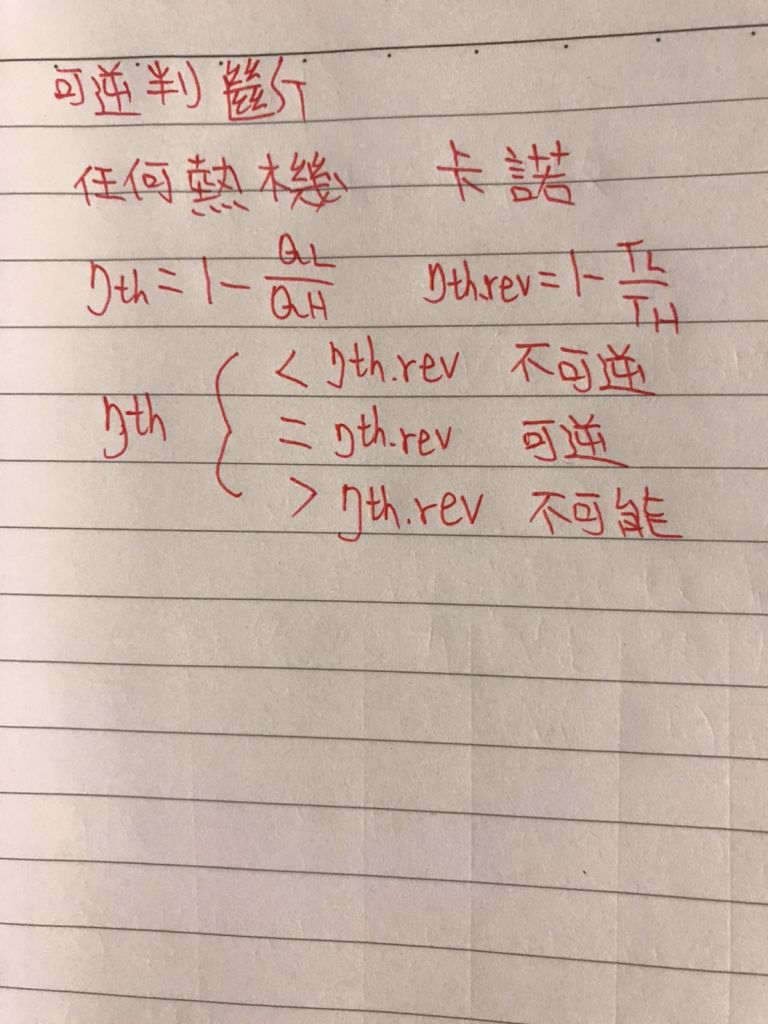 可逆判斷
任何熱機 卡諾
ηth = 1 - QL/QH ηth.rev = 1 - TL/TH
ηth { < ηth.rev 不可逆
= ηth.rev 可逆
> ηth.rev 不可能